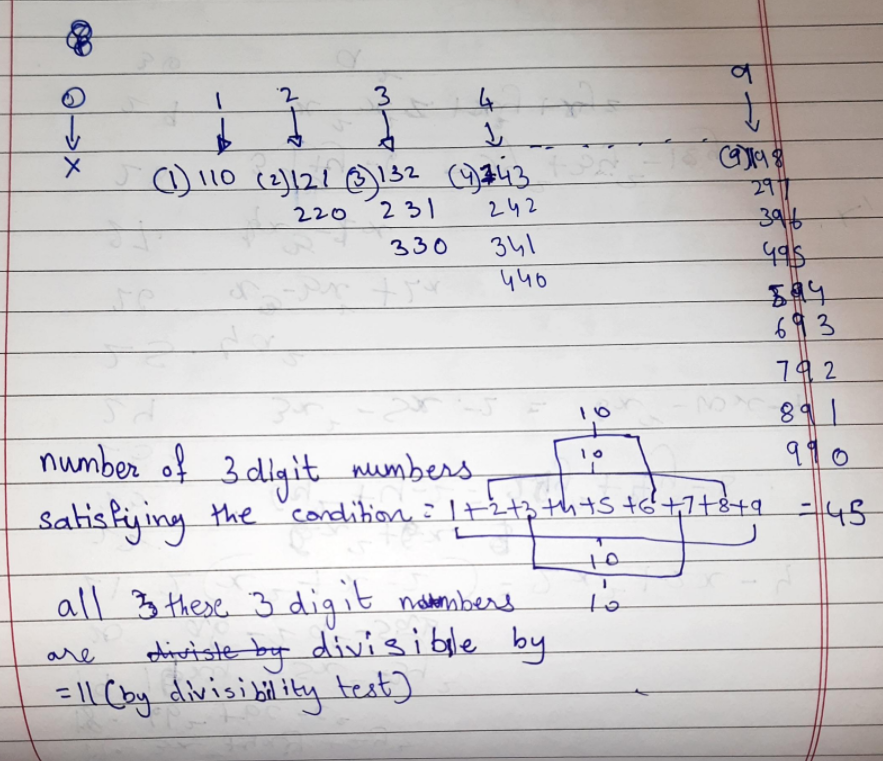 8
0 1 2 3 4 9
↓ ↓ ↓ ↓ ↓ -- ...... ↓
x (1) 110 (2) 121 (3) 132 (4) 143 (9) 198
220 231 242 297
330 341 396
440 495
594
693
792
891
990
10
10
number of 3 digit numbers
satisfiying the condition = 1+2+3+4+5+6+7+8+9 = 45
10
10
all these 3 digit numbers
are diviste by divisible by
=11 (by divisibility test)